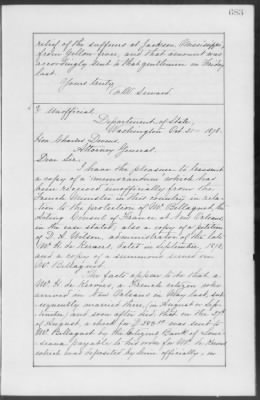 683
relief of the sufferers at Jackson, Mississippi,
from Yellow fever, and that amount was
accordingly sent to that gentleman on Friday
last.
Yours truly,
Seward.
Unofficial.
Department of State,
Washington Oct. 31 1878.
Hon. Charles Devens,
Attorney General.
Dear Sir,
I have the pleasure to transmit
a copy of a memorandum which has
been received unofficially from the
French Minister in this country in rela-
tion to the position of Mr. Bellaquet, the
Acting Consul of France at New Orleans,
in the case stated; also a copy of a petition
of D. A. Wilson, administrator of the late
W. H. de Kervers, dated in September, 1878,
and a copy of a summons served on
M. Bellaquet.
The facts appear to be that a
W. H. de Kervers, a French citizen who
arrived in New Orleans in May last, sub-
sequently married there, (in August or Sep-
tember) and soon after died; that on the 29th
of August, a check for $ was sent to
Mr Bellaquet by the Citizens Bank of Loui-
siana payable to his order for Mr. de Kervers
which was deposited by him officially, in